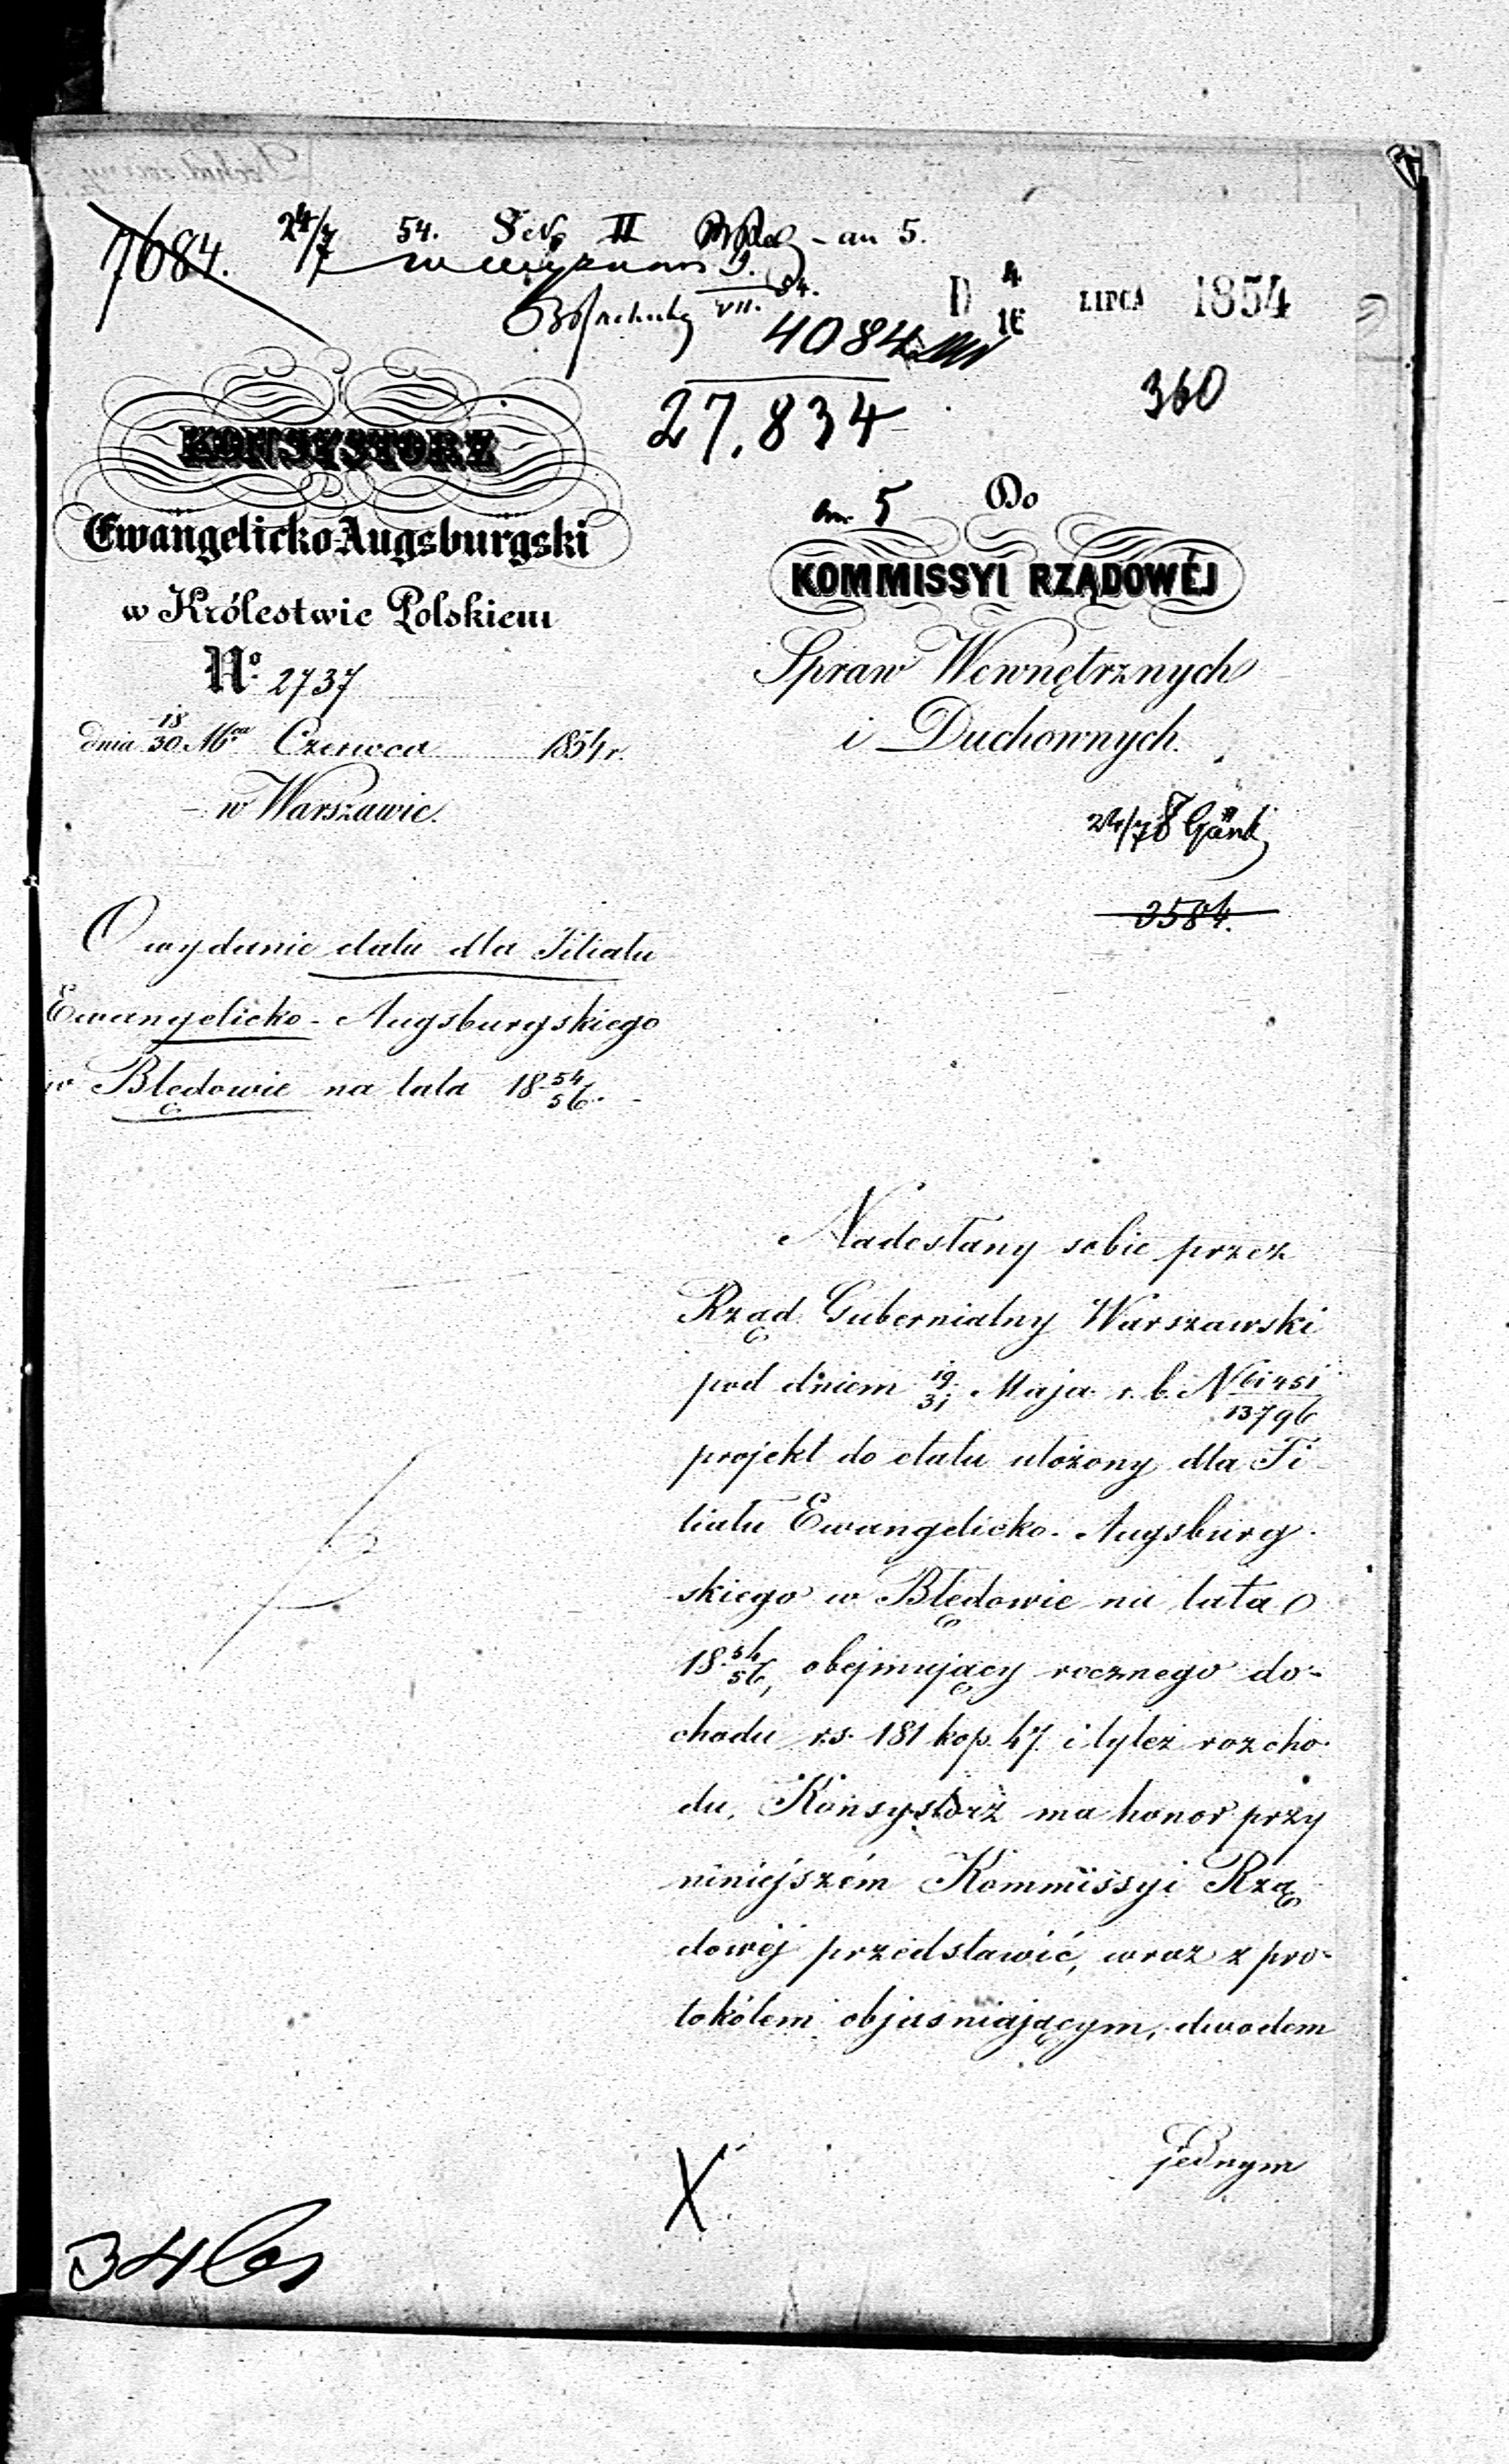 7684.
24/7 54. II an 5.
VII. 54.
D 4/16 LIPCA 1854
4084
360
27,834
KONSYSTORZ
Ewangelicko-Augsburgski
w Królestwie Polskiem
No. 2737
dnia 18/30 Mca Czerwca 1854 r.
w Warszawie.
5 Do
KOMMISSYI RZĄDOWÉJ
Spraw Wewnętrznych
i Duchownych.
24/7
3584.
O wydanie etatu dla Filiału
Ewangelicko-Augsburgskiego
w Błędowie na lata 18 54/56.
Nadesłany sobie przez
Rząd Gubernialny Warszawski
pod dniem 19/31 Maja r. b. N 61451/13796
projekt do etatu ułożony dla Fi-
liału Ewangelicko-Augsburg-
skiego w Błędowie na lata
18 54/56, obejmujący rocznego do-
chodu rs. 181 kop. 47 i tyleż rozcho-
du, Konsystorz ma honor przy
niniejszém Kommissyi Rzą-
dowéj przedstawić, wraz z pro-
tokółem objaśniającym, dwodem
jednym
X